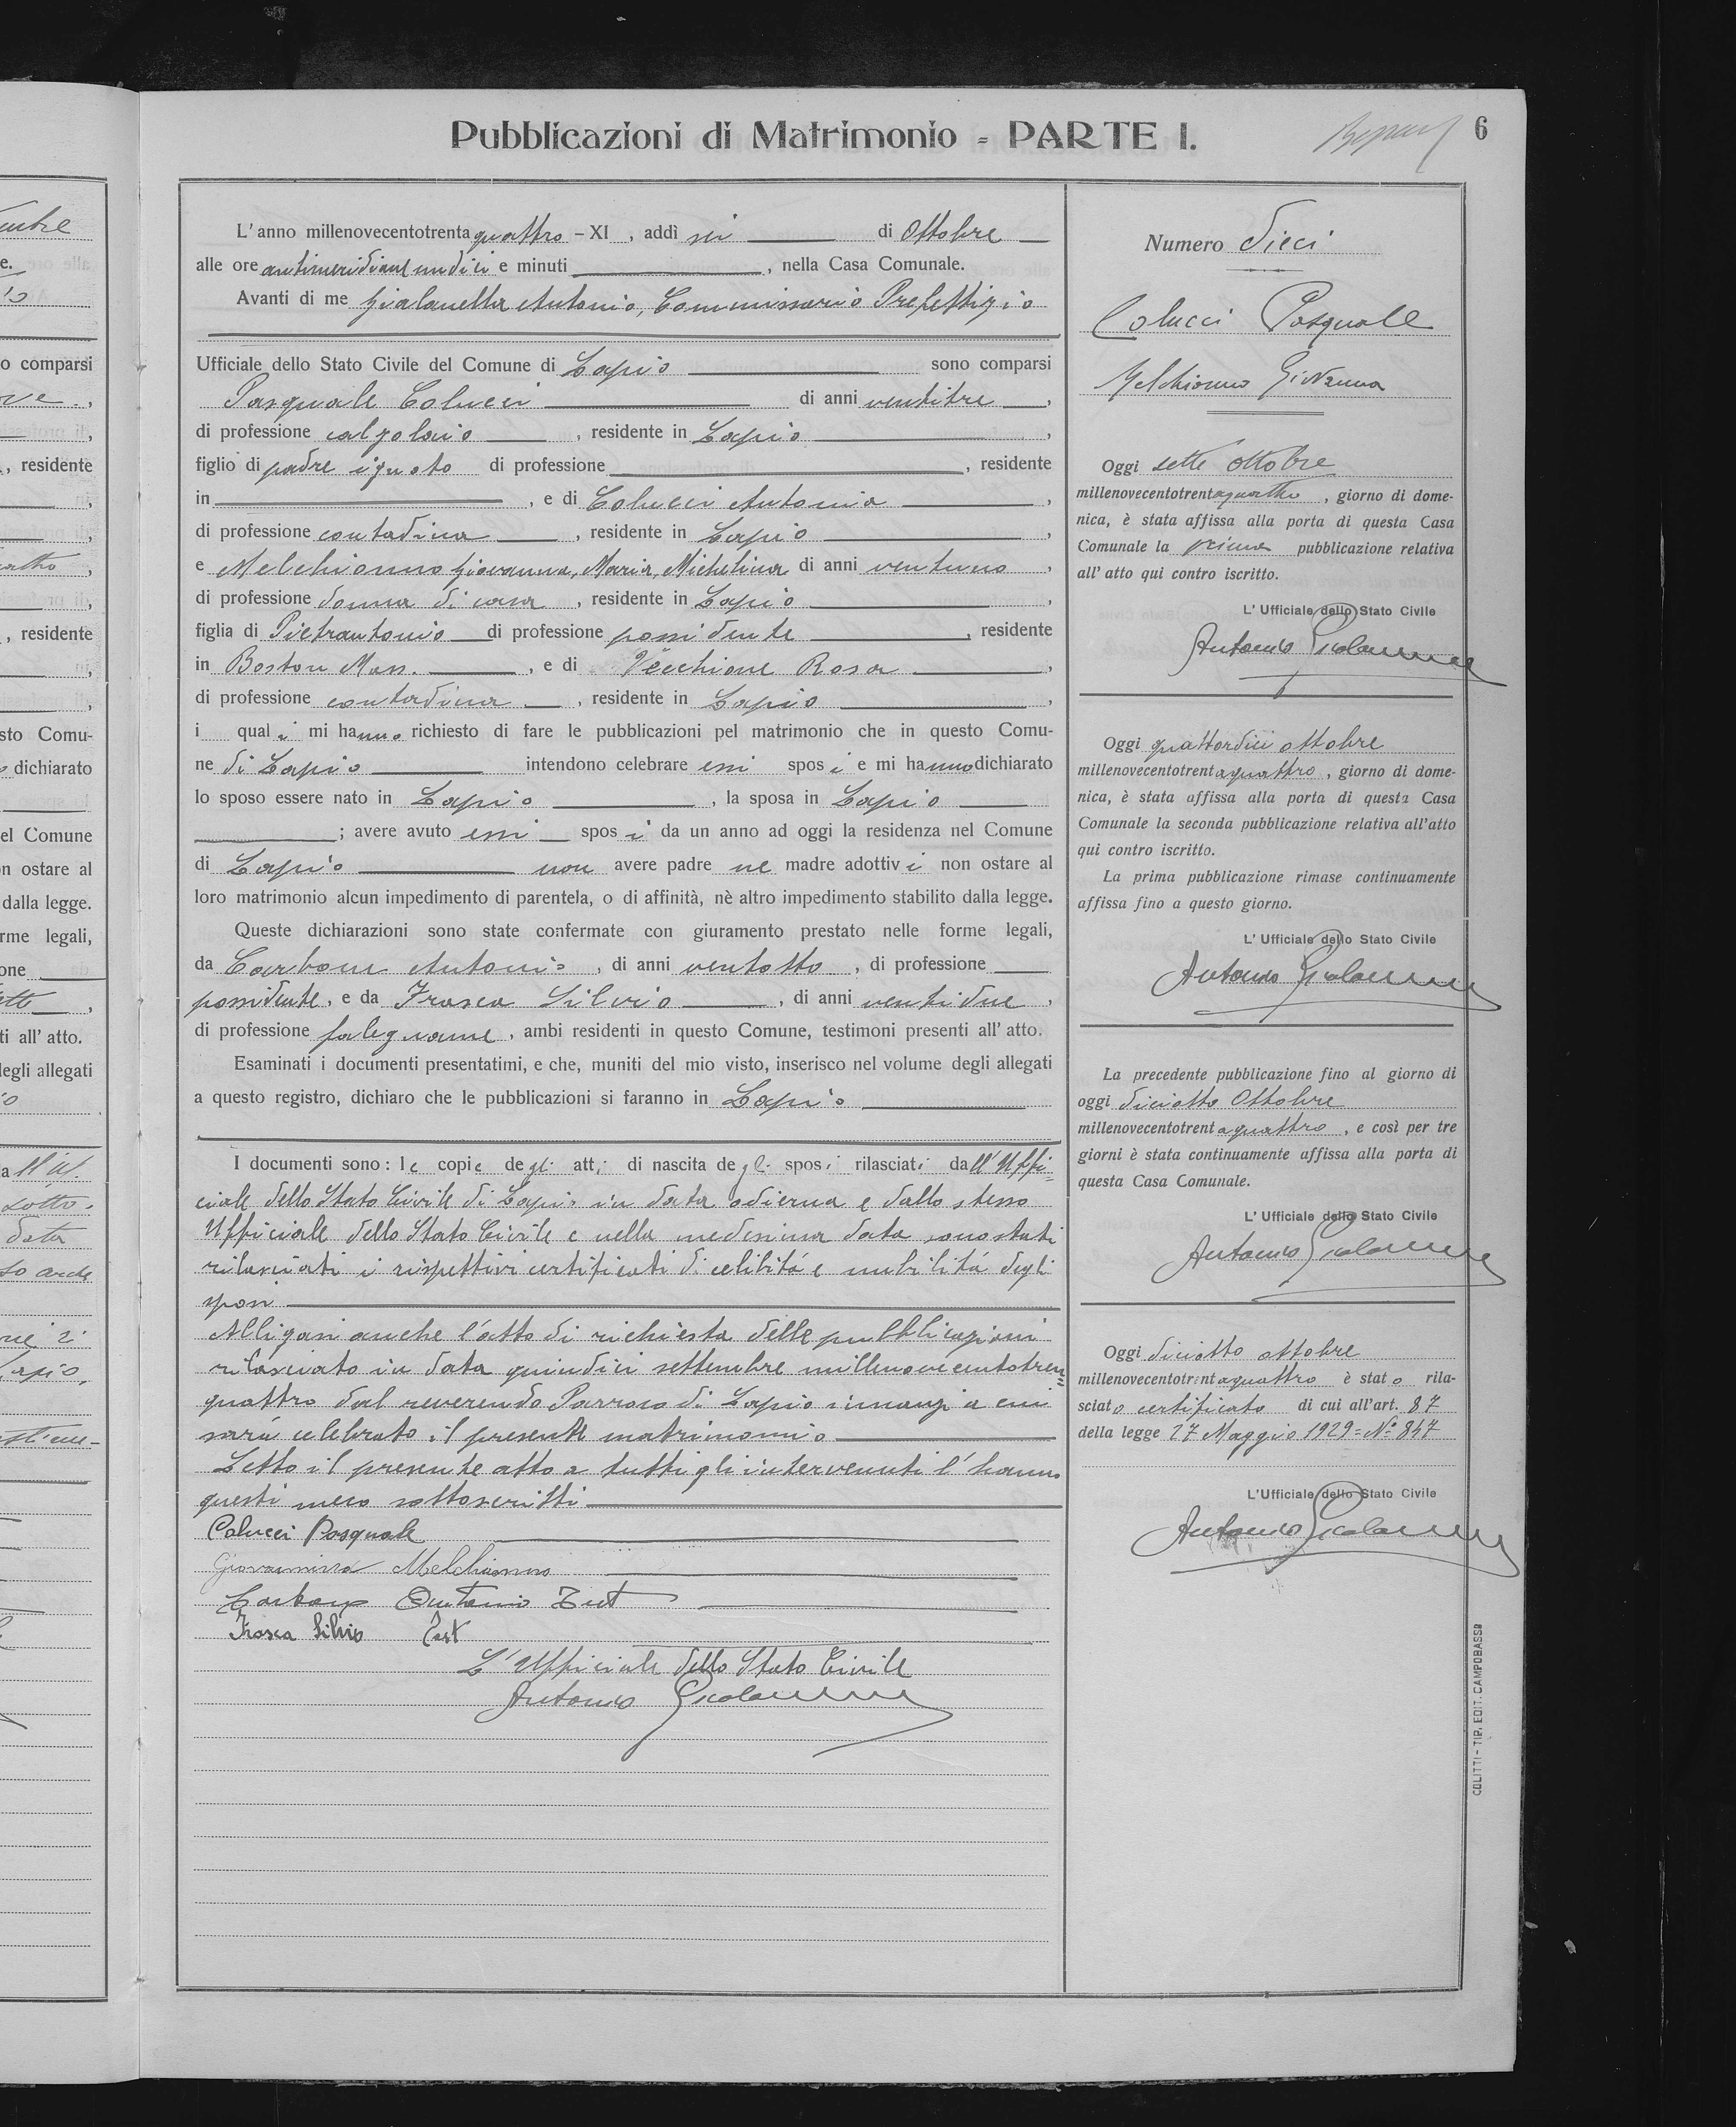 Pubblicazioni di Matrimonio - PARTE I.
6
L'anno millenovecentotrentaquattro - XI, addì sei di Ottobre
alle ore antimeridiane undici e minuti , nella Casa Comunale.
Avanti di me Gialanella Antonio, Commissario Prefettizio
Ufficiale dello Stato Civile del Comune di Lapio sono comparsi
Pasquale Colucci di anni ventitre ,
di professione calzolaio , residente in Lapio ,
figlio di padre ignoto di professione , residente
in , e di Colucci Antonia ,
di professione contadina , residente in Lapio ,
e Melchionno Giovanna, Maria, Michelina di anni ventuno ,
di professione donna di casa , residente in Lapio ,
figlia di Pietrantonio di professione possidente , residente
in Boston Mass. , e di Vecchione Rosa ,
di professione contadina , residente in Lapio ,
i quali mi hanno richiesto di fare le pubblicazioni pel matrimonio che in questo Comu-
ne di Lapio intendono celebrare essi sposi e mi hanno dichiarato
lo sposo essere nato in Lapio , la sposa in Lapio
; avere avuto essi sposi da un anno ad oggi la residenza nel Comune
di Lapio non avere padre ne madre adottivi non ostare al
loro matrimonio alcun impedimento di parentela, o di affinità, nè altro impedimento stabilito dalla legge.
Queste dichiarazioni sono state confermate con giuramento prestato nelle forme legali,
da Carbone Antonio , di anni ventotto , di professione
possidente, e da Frasca Silvio , di anni ventidue ,
di professione falegname , ambi residenti in questo Comune, testimoni presenti all' atto.
Esaminati i documenti presentatimi, e che, muniti del mio visto, inserisco nel volume degli allegati
a questo registro, dichiaro che le pubblicazioni si faranno in Lapio
I documenti sono: le copie degli atti di nascita degli sposi rilasciati dall'Uffi=
ciale dello Stato Civile di Lapio in data odierna e dallo stesso
Ufficiale dello Stato Civile e nella medesima data sono stati
rilasciati i rispettivi certificati di celibitá e nubilitá degli
sposi
Alligasi anche l'atto di richiesta delle pubblicazioni
rilasciato in data quindici settembre millenovecentotren=
quattro dal reverendo Parroco di Lapio innanzi a cui
sará celebrato il presente matrimonio
Letto il presente atto a tutti gli intervenuti l'hanno
questi meco sottoscritti
Colucci Pasquale
Giovannina Melchionno
Carbone Antonio Test
Frasca Silvio Test
L'Ufficiale dello Stato Civile
Antonio Gialanella
Numero dieci
Colucci Pasquale
Melchionno Giovanna
Oggi sette ottobre
millenovecentotrentaquattro , giorno di dome-
nica, è stata affissa alla porta di questa Casa
Comunale la prima pubblicazione relativa
all' atto qui contro iscritto.
L' Ufficiale dello Stato Civile
Antonio Gialanella
Oggi quattordici ottobre
millenovecentotrentaquattro , giorno di dome-
nica, è stata affissa alla porta di questa Casa
Comunale la seconda pubblicazione relativa all'atto
qui contro iscritto.
La prima pubblicazione rimase continuamente
affissa fino a questo giorno.
L' Ufficiale dello Stato Civile
Antonio Gialanella
La precedente pubblicazione fino al giorno di
oggi diciotto Ottobre
millenovecentotrentaquattro , e così per tre
giorni è stata continuamente affissa alla porta di
questa Casa Comunale.
L' Ufficiale dello Stato Civile
Antonio Gialanella
Oggi diciotto ottobre
millenovecentotrentaquattro è stato rila-
sciato certificato di cui all'art. 87
della legge 27 Maggio 1929=No 847
L'Ufficiale dello Stato Civile
Antonio Gialanella
COLITTI - TIP. EDIT. CAMPOBASSO